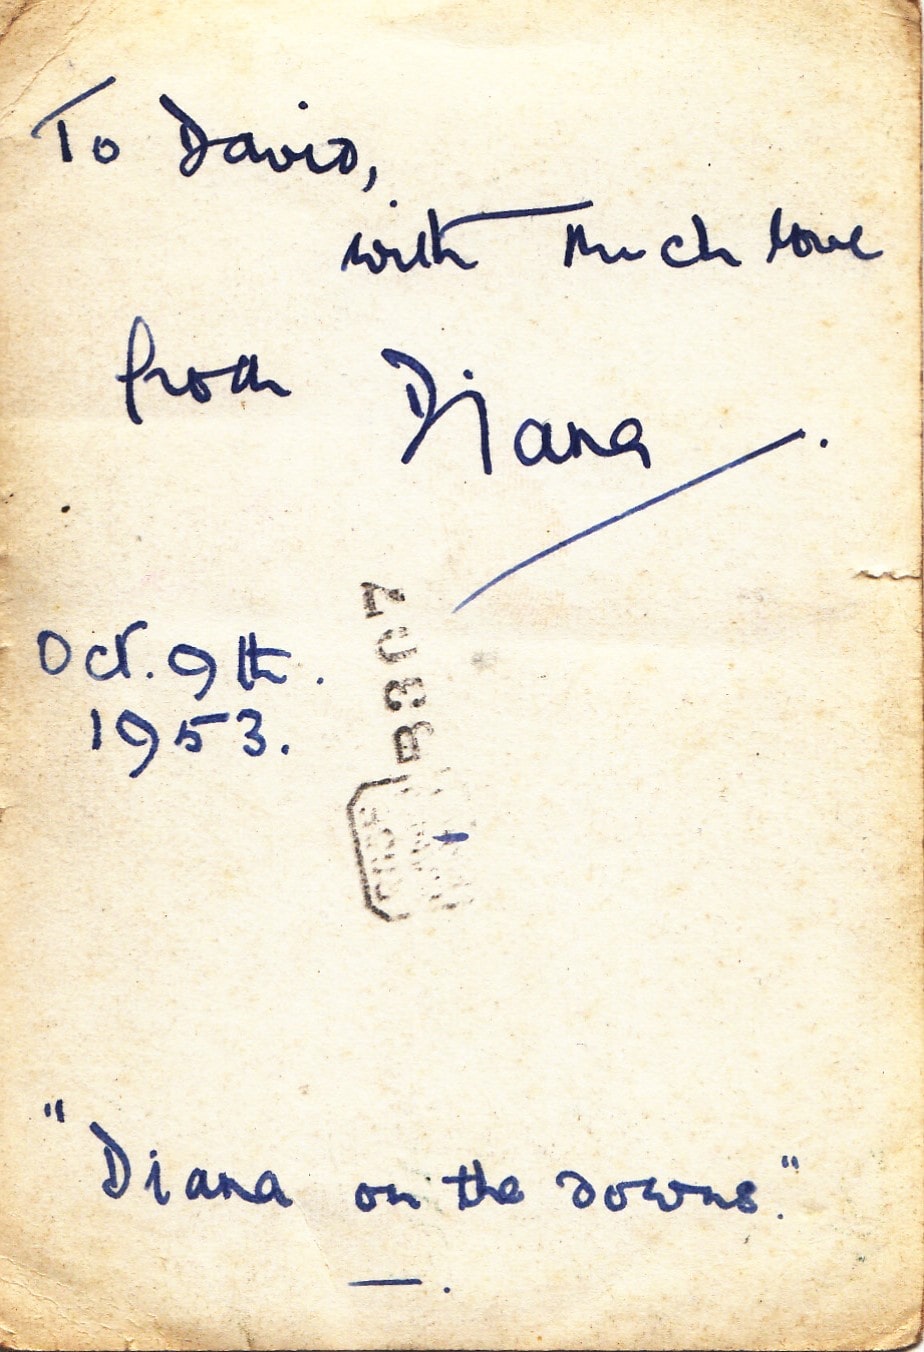 To David,
with much love
from Diana.
Oct. 9th.
1953.
"Diana on the downs."